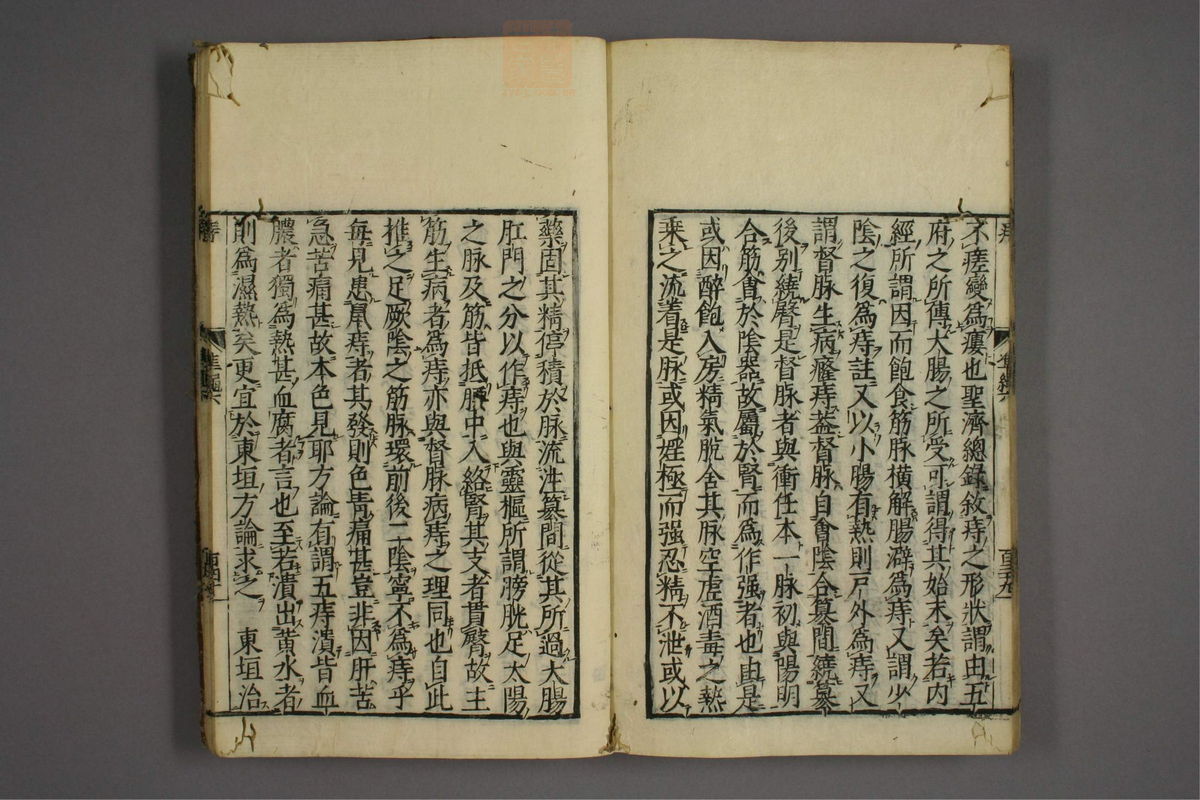 不痊變爲瘻也聖濟總錄敘痔之形狀謂由五
府之所傳大腸之所受可謂得其始末矣若内
經所謂因而飽食筋脉橫解腸澼爲痔又謂少
陰之復爲痔註又以小腸有熱則戸外爲痔又
謂督脉生病癃痔蓋督脉自會陰合篡間繞篡
後别繞臀是督脉者與衝任本一脉初與陽明
合筋會於陰器故屬於腎而爲作强者也由是
或因醉飽入房精氣脫舍其脉空虛酒毒之熱
乘之流着是脉或因婬極而强忍精不泄或以
藥固其精停積於脉流注篡間從其所過大腸
肛門之分以作痔也與靈樞所謂膀胱足太陽
之脉及筋皆抵腰中入絡腎其支者貫臀故主
筋生病者爲痔亦與督脉病痔之理同也自此
推之足厥陰之筋脉環前後二陰寧不爲痔乎
每見患鼠痔者其發則色靑痛甚豈非因肝苦
急苦痛甚故本色見耶方論有謂五痔潰皆血
膿者獨爲熱甚血腐者言也至若潰出黄水者
則爲濕熱矣更宜於東垣方論求之　東垣治
痔